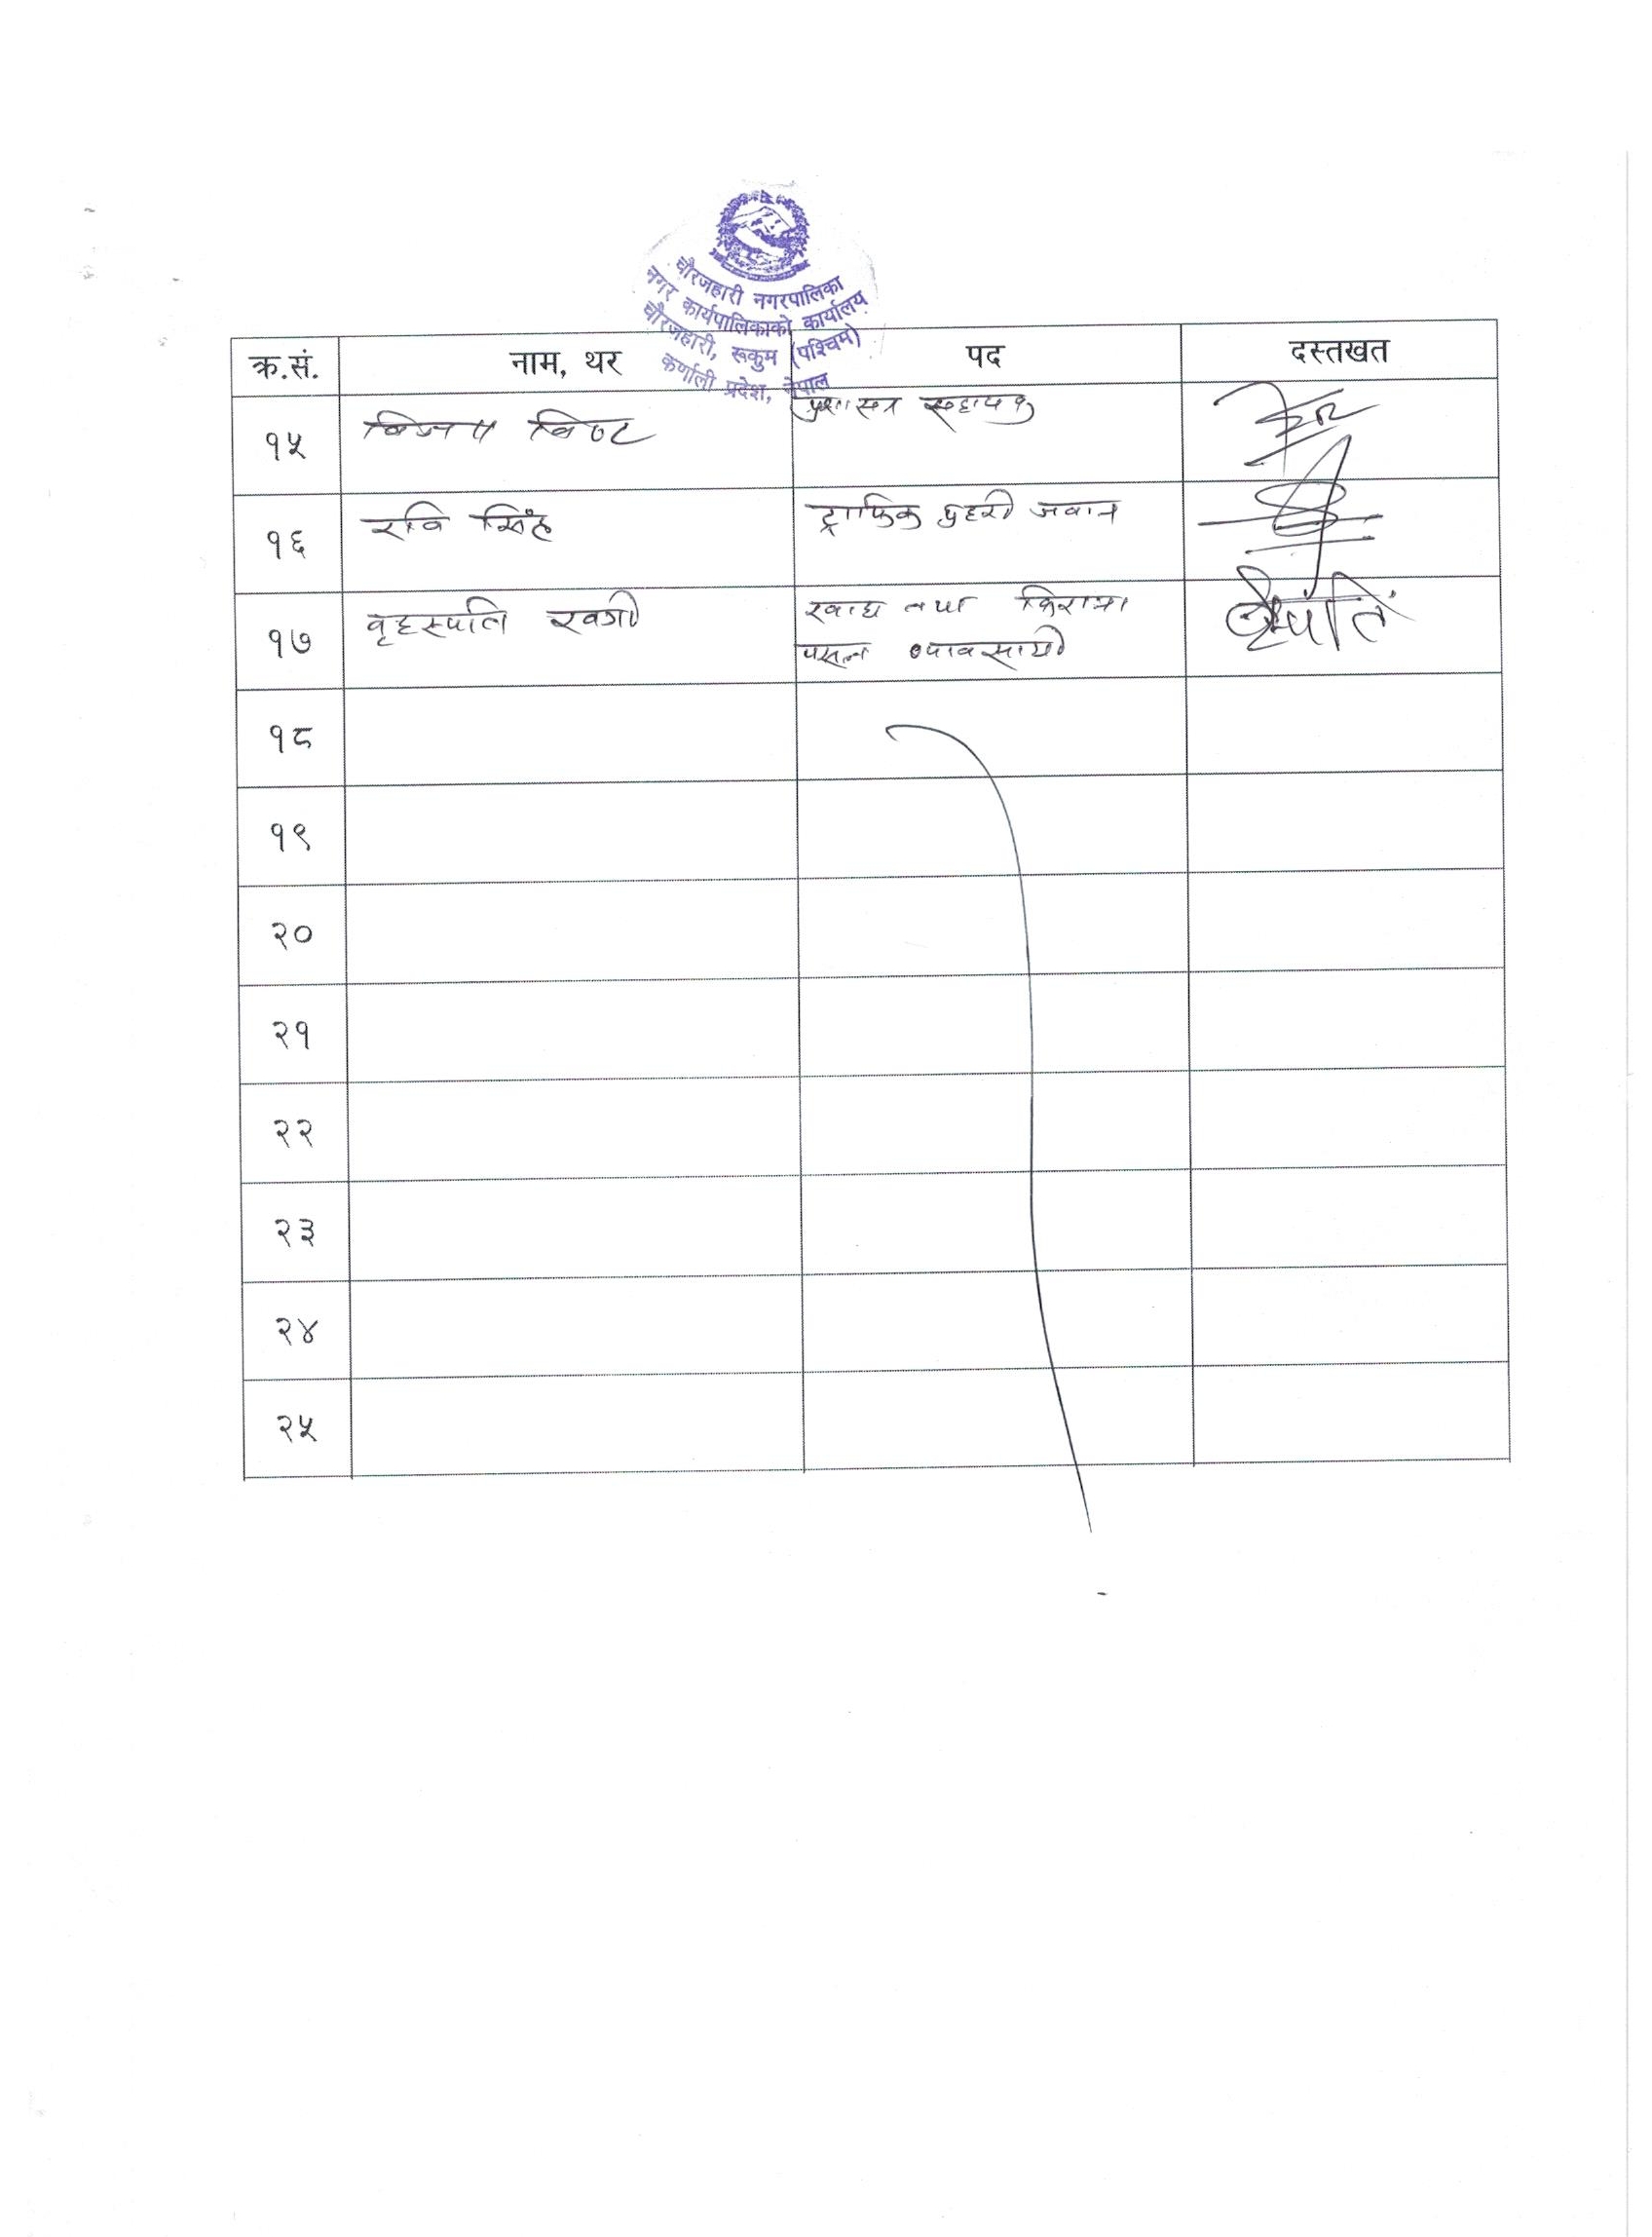 चौरजहारी नगरपालिका
नगर कार्यपालिकाको कार्यालय
चौरजहारी, रूकुम (पश्चिम)
कर्णाली प्रदेश, नेपाल
क्र.सं. नाम, थर पद दस्तखत
१५ विजय विष्ट प्रशासन सहायक
१६ रवि सिंह ट्राफिक प्रहरी जवान
१७ वृहस्पति खत्री खाद्य तथा किराना
पसल व्यावसायी
१८
१९
२०
२१
२२
२३
२४
२५